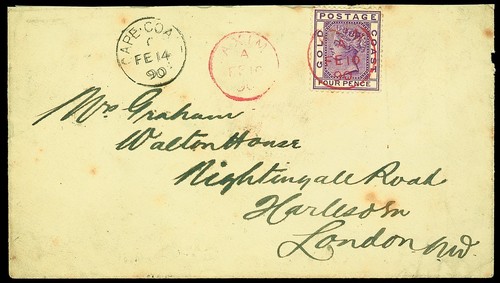 CAPE COA
C
FE 14
90
A
FE 10
90
POSTAGE
GOLD COAST
FOUR PENCE
FE 10
90
Mrs Graham
Walton House
Nightingall Road
Harlesdn
London NW.